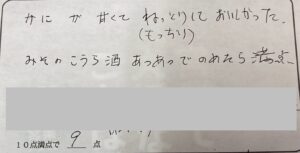 かにが甘くてねっとりしておいしかった。
(もっちり)
みそのこうら酒あつあつでのめたら満点。
10点満点で 9 点